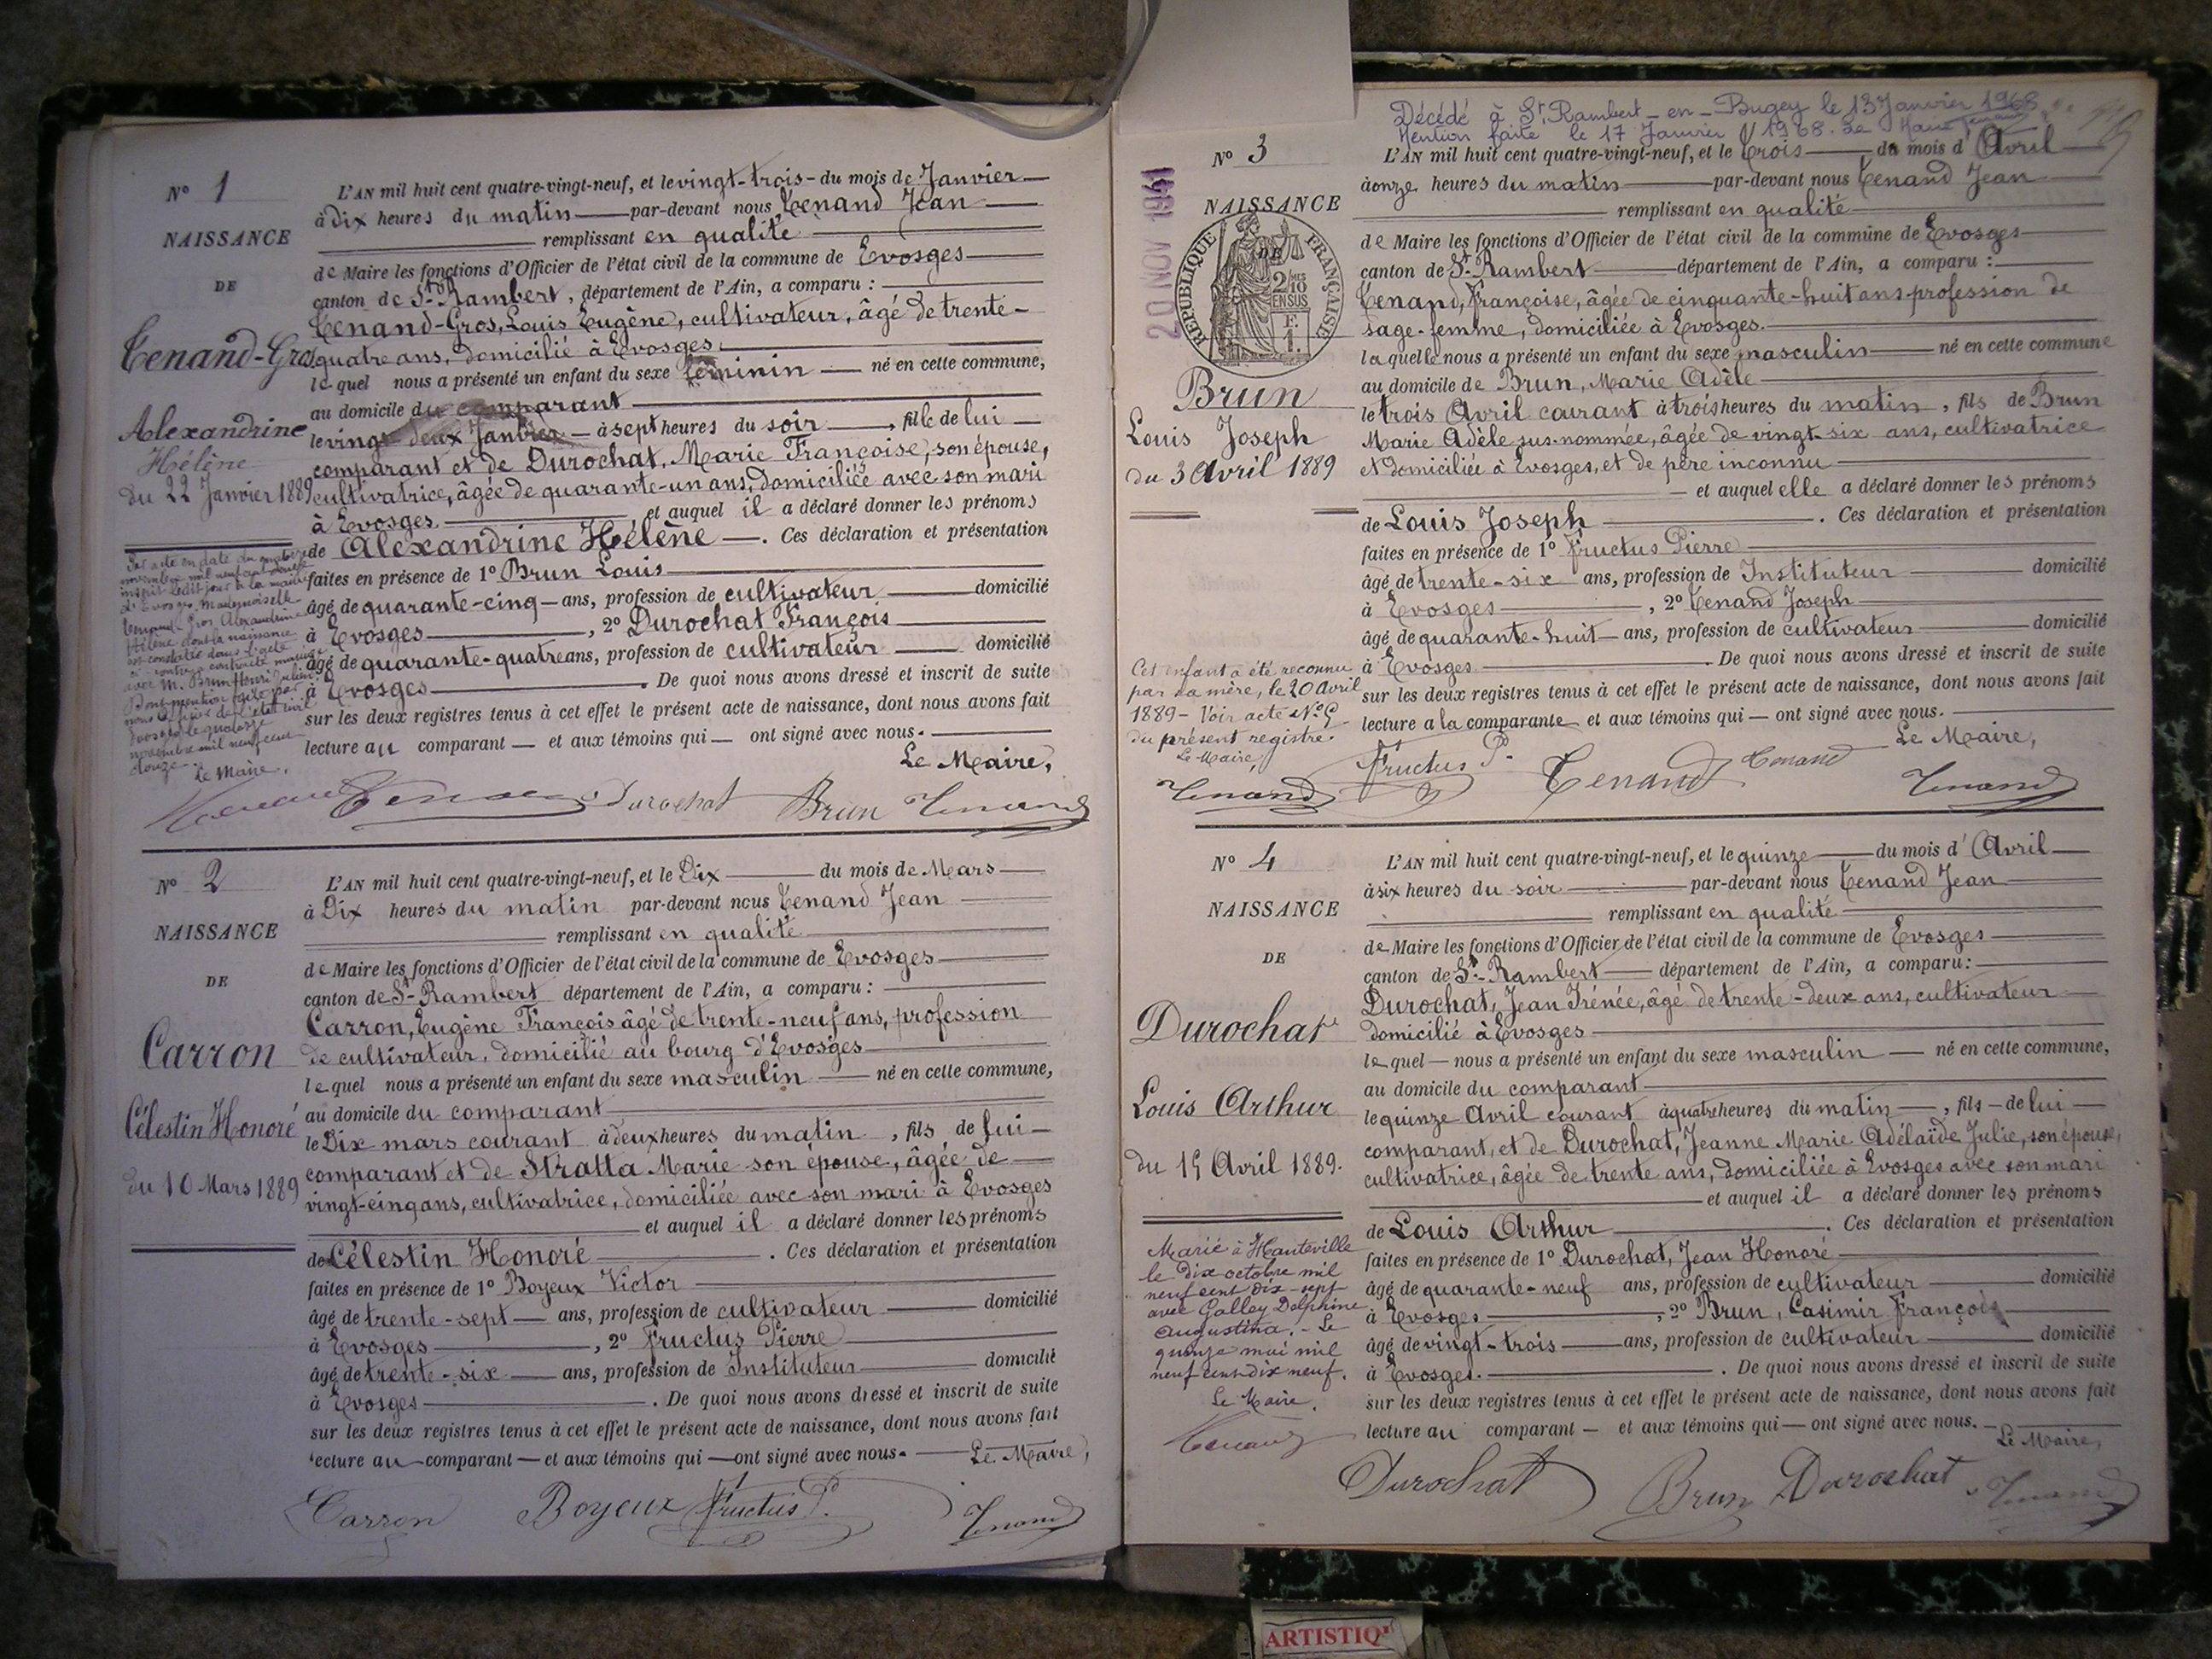 N° 1
NAISSANCE
DE
Tenand-Gros
Alexandrine
Hélène
du 22 Janvier 1889
L'AN mil huit cent quatre-vingt-neuf, et le vingt-trois - du mois de Janvier
à Dix heures du matin par-devant nous Tenand Jean
remplissant en qualité
de Maire les fonctions d'Officier de l'état civil de la commune de Evosges
canton de St-Rambert, département de l'Ain, a comparu :
Tenand-Gros, Louis Eugène, cultivateur, âgé de trente-
quatre ans, domicilié à Evosges
lequel nous a présenté un enfant du sexe féminin né en cette commune,
au domicile du comparant
le vingt-deux Janvier à sept heures du soir, fille de lui
comparant et de Durochat, Marie Françoise, son épouse,
cultivatrice, âgée de quarante-un ans, domiciliée avec son mari
à Evosges. et auquel il a déclaré donner les prénoms
de Alexandrine Hélène. Ces déclaration et présentation
faites en présence de 1° Brun Louis
âgé de quarante-cinq ans, profession de cultivateur domicilié
à Evosges, 2° Durochat François
âgé de quarante-quatre ans, profession de cultivateur domicilié
à Evosges. De quoi nous avons dressé et inscrit de suite
sur les deux registres tenus à cet effet le présent acte de naissance, dont nous avons fait
lecture au comparant et aux témoins qui ont signé avec nous.
Le Maire,
Par acte en date du quatorze
novembre mil neuf cent douze
inscrit ledit jour à la mairie
d'Evosges, Mademoiselle
Tenand-Gros Alexandrine
Hélène dont la naissance
est constatée dans l'acte
ci-contre a contracté mariage
avec M. Brun Henri
Dont mention faite par
nous officier de l'état civil
Evosges le quatorze
novembre mil neuf cent
douze.
Le Maire,
Durochat Brun Tenand
N° 2
NAISSANCE
DE
Carron
Célestin Honoré
du 10 Mars 1889
L'AN mil huit cent quatre-vingt-neuf, et le Dix du mois de Mars
à Dix heures du matin par-devant nous Tenand Jean
remplissant en qualité
de Maire les fonctions d'Officier de l'état civil de la commune de Evosges
canton de St-Rambert département de l'Ain, a comparu :
Carron, Eugène François âgé de trente-neuf ans, profession
de cultivateur, domicilié au bourg d'Evosges
lequel nous a présenté un enfant du sexe masculin né en cette commune,
au domicile du comparant
le Dix mars courant à deux heures du matin, fils de lui-
comparant et de Stratta Marie son épouse, âgée de
vingt-cinq ans, cultivatrice, domiciliée avec son mari à Evosges
et auquel il a déclaré donner les prénoms
de Célestin Honoré. Ces déclaration et présentation
faites en présence de 1° Boyeux Victor
âgé de trente-sept ans, profession de cultivateur domicilié
à Evosges, 2° Fructus Pierre
âgé de trente-six ans, profession de Instituteur domicilié
à Evosges. De quoi nous avons dressé et inscrit de suite
sur les deux registres tenus à cet effet le présent acte de naissance, dont nous avons fait
lecture au comparant et aux témoins qui ont signé avec nous. Le Maire,
Carron Boyeux Fructus P. Tenand
Décédé à St Rambert-en-Bugey le 13 Janvier 1968
Mention faite le 17 Janvier 1968. Le Maire
N° 3
20 NOV 1941
NAISSANCE
DE
RÉPUBLIQUE FRANÇAISE
2/10 MES
EN SUS
F.
1.
Brun
Louis Joseph
du 3 Avril 1889
L'AN mil huit cent quatre-vingt-neuf, et le trois du mois d'Avril
à onze heures du matin par-devant nous Tenand Jean
remplissant en qualité
de Maire les fonctions d'Officier de l'état civil de la commune de Evosges
canton de St-Rambert département de l'Ain, a comparu :
Tenand, Françoise, âgée de cinquante-huit ans profession de
sage-femme, domiciliée à Evosges.
laquelle nous a présenté un enfant du sexe masculin né en cette commune
au domicile de Brun, Marie Adèle
le trois Avril courant à trois heures du matin, fils de Brun
Marie Adèle sus-nommée, âgée de vingt-six ans, cultivatrice
et domiciliée à Evosges, et de père inconnu
et auquel elle a déclaré donner les prénoms
de Louis Joseph. Ces déclaration et présentation
faites en présence de 1° Fructus Pierre
âgé de trente-six ans, profession de Instituteur domicilié
à Evosges, 2° Tenand Joseph
âgé de quarante-huit ans, profession de cultivateur domicilié
à Evosges. De quoi nous avons dressé et inscrit de suite
sur les deux registres tenus à cet effet le présent acte de naissance, dont nous avons fait
lecture a la comparante et aux témoins qui ont signé avec nous.
Le Maire,
Cet enfant a été reconnu
par sa mère, le 20 Avril
1889 - Voir acte N° 5
du présent registre.
Le Maire,
Tenand Fructus P. Tenand Tenand Tenand
N° 4
NAISSANCE
DE
Durochat
Louis Arthur
du 15 Avril 1889.
L'AN mil huit cent quatre-vingt-neuf, et le quinze du mois d'Avril
à six heures du soir par-devant nous Tenand Jean
remplissant en qualité
de Maire les fonctions d'Officier de l'état civil de la commune de Evosges
canton de St-Rambert département de l'Ain, a comparu :
Durochat, Jean Irénée, âgé de trente-deux ans, cultivateur
domicilié à Evosges
lequel nous a présenté un enfant du sexe masculin né en cette commune,
au domicile du comparant
le quinze Avril courant à quatre heures du matin, fils de lui
comparant, et de Durochat, Jeanne Marie Adélaïde Julie, son épouse,
cultivatrice, âgée de trente ans, domiciliée à Evosges avec son mari
et auquel il a déclaré donner les prénoms
de Louis Arthur. Ces déclaration et présentation
faites en présence de 1° Durochat, Jean Honoré
âgé de quarante-neuf ans, profession de cultivateur domicilié
à Evosges, 2° Brun, Casimir François
âgé de vingt-trois ans, profession de cultivateur domicilié
à Evosges. De quoi nous avons dressé et inscrit de suite
sur les deux registres tenus à cet effet le présent acte de naissance, dont nous avons fait
lecture au comparant et aux témoins qui ont signé avec nous.
Le Maire,
Marié à Hauteville
le dix octobre mil
neuf cent dix-sept
avec Galley Delphine
Augustina. - Le
quinze mai mil
neuf cent dix neuf.
Le Maire,
Durochat Brun Durochat Tenand
ARTISTIQ